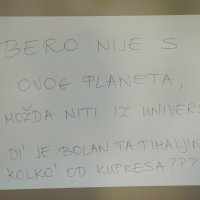 BERO NIJE S
OVOG PLANETA,
MOŽDA NITI IZ UNIVERS
DI' JE BOLAN TA TIHALJIN
KOLKO' OD KUPRESA???